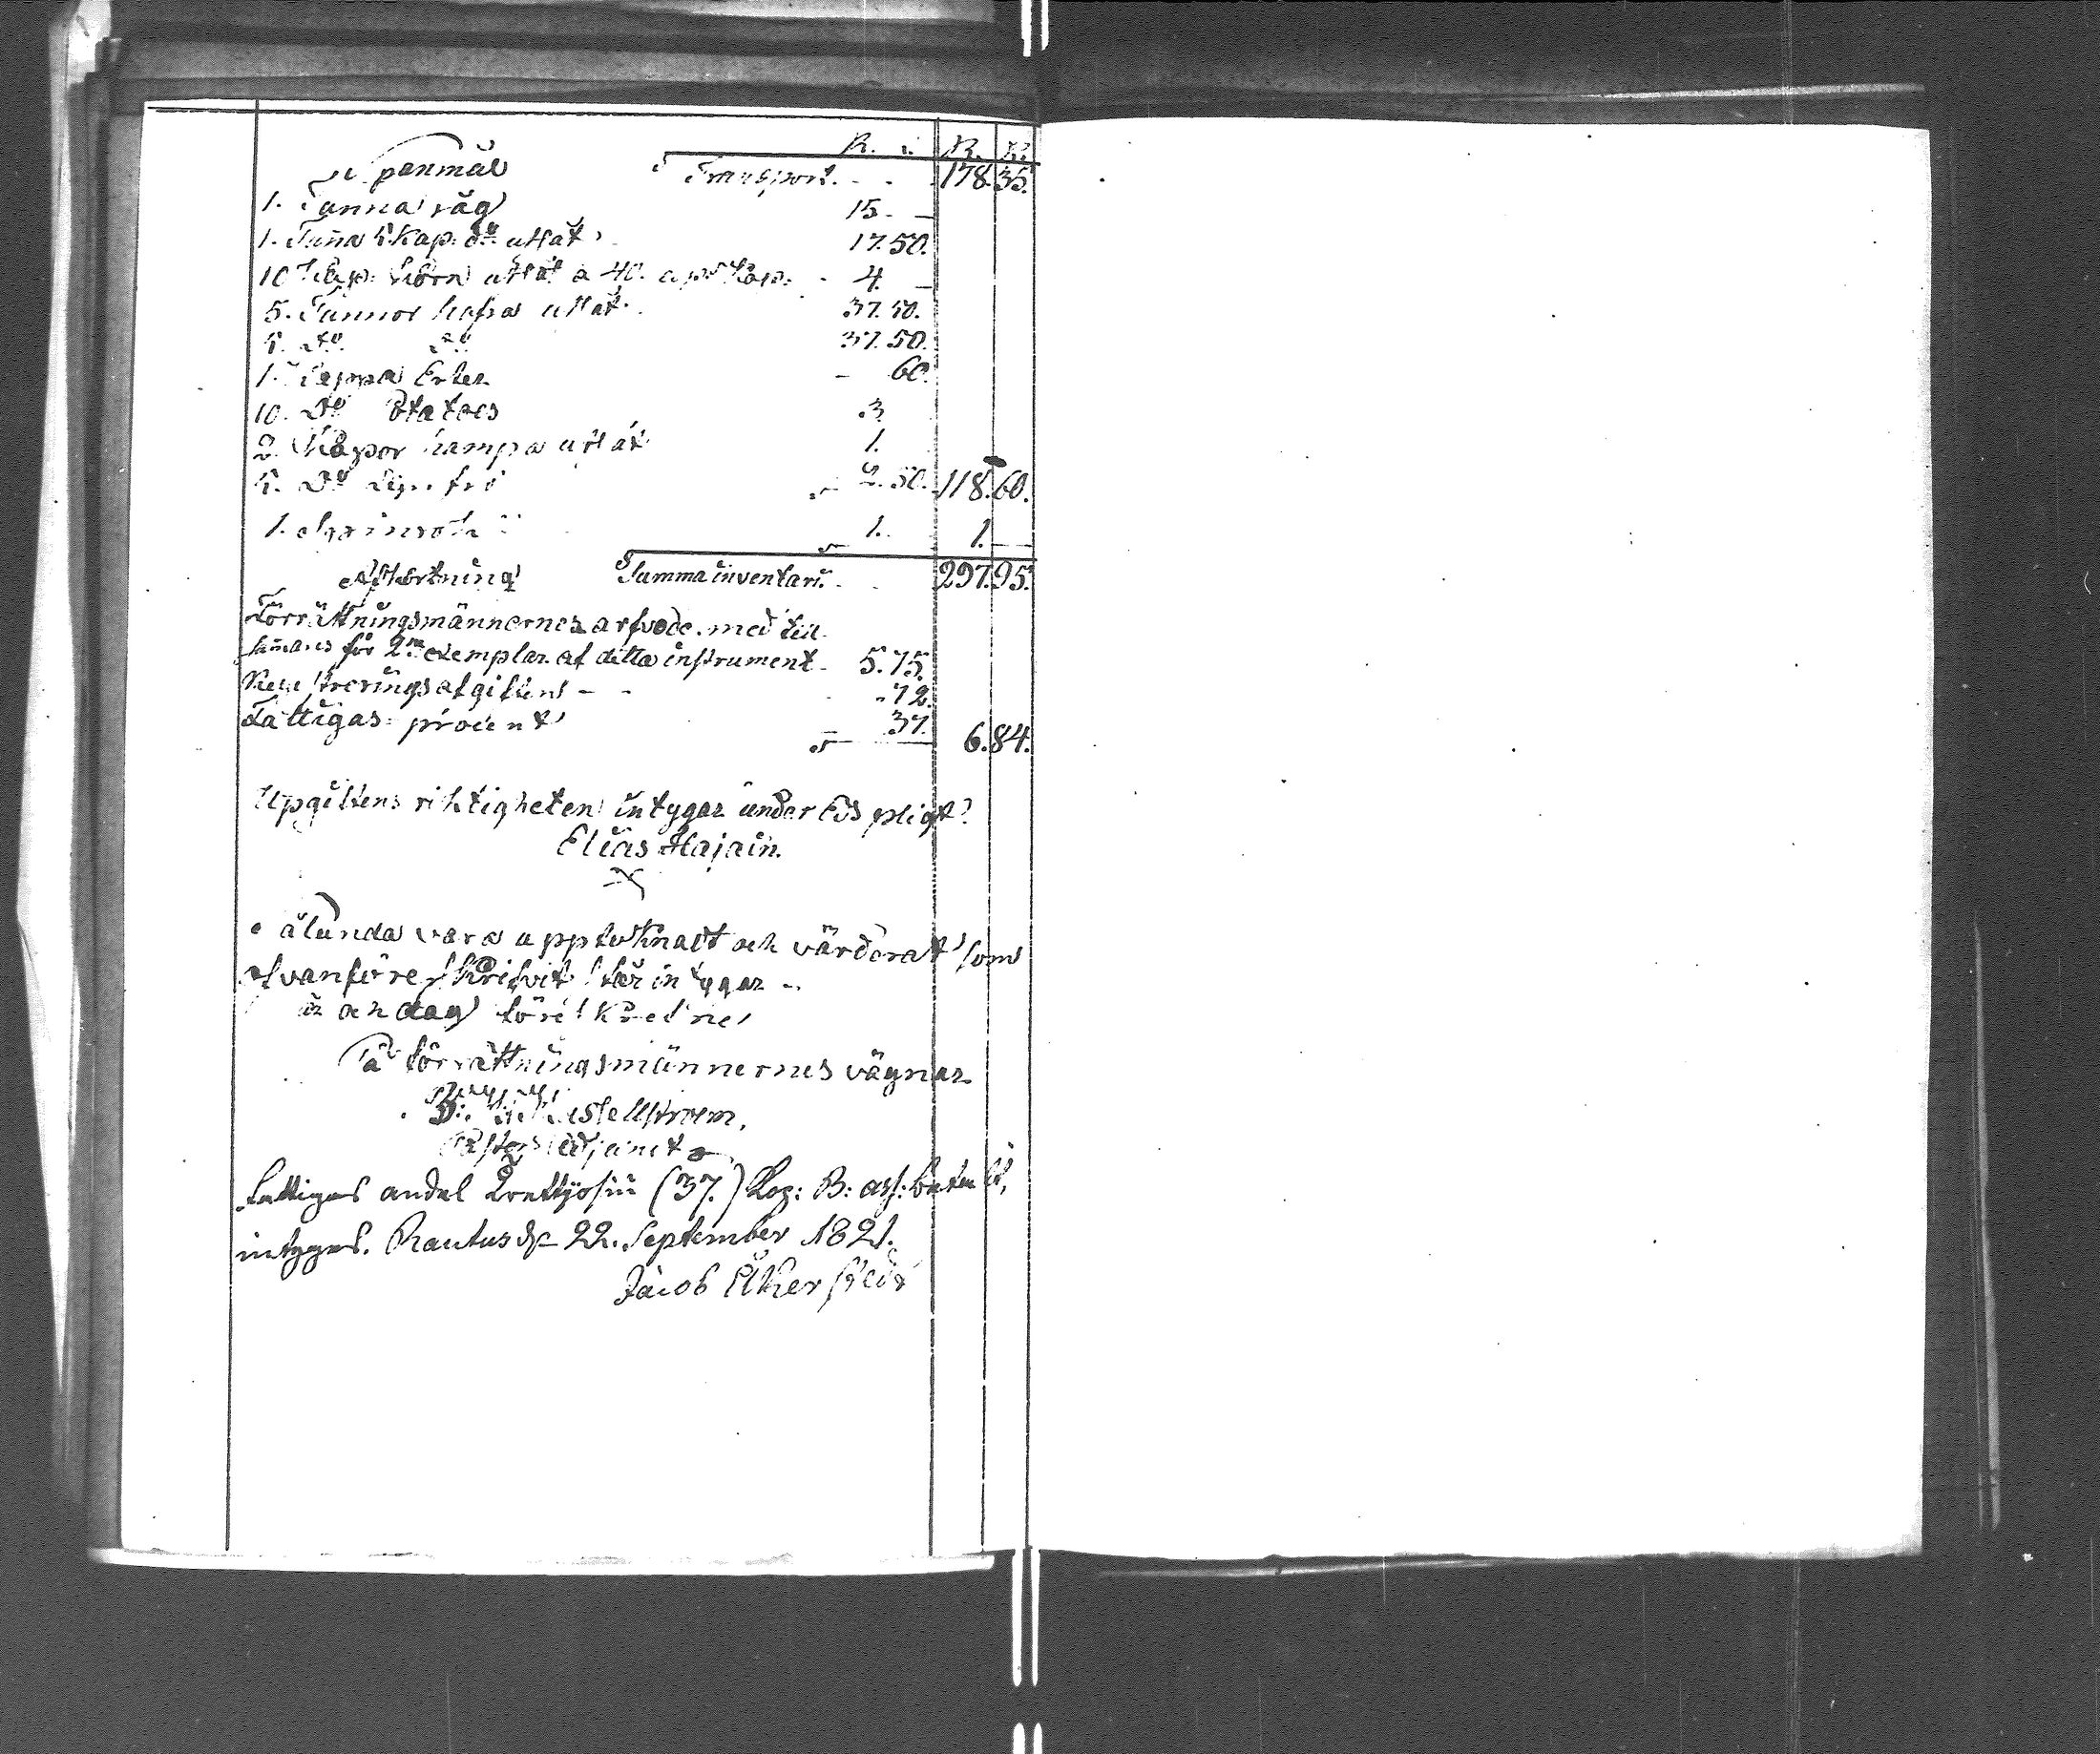 R. R. K.
Spanmål Transport. 178. 35.
1. Tunna råg 15. —
1. Tuña 5. Kap. do utsät 17. 50.
10 Kap. korn utsät a 40. cop kap. 4. —
5. Tunnor hafra utsät 37. 50.
5. Do Do 37. 50.
1. Kappa Erter — 60.
10. Do Potatoes 3.
2. Kapor hampa utsät 1.
5. Do frö 2. 50. 118. 60.
1. 1. 1. —
Afkortning Summa inventarii 297. 95.
Förrättningsmännernes arfvode med
för 2ne exemplar af detta instrument 5. 75.
Registreringsafgiften — 72.
Fattigas procent — 37. 6. 84.
Upgiftens riktigheten intygar under Eds pligt.
Elias Hajain.
Sålunda vara upptecknadt och värderat som
ofvanföreskrifvit står intygar
år och dag föreskrefne
På förrättningsmännernes vägnar
Pastors adjunct
Fattiges andel Trettijosju (37.) Kop: B: ass: betalt,
intyges. Rautus d. 22. September 1821.
Jacob